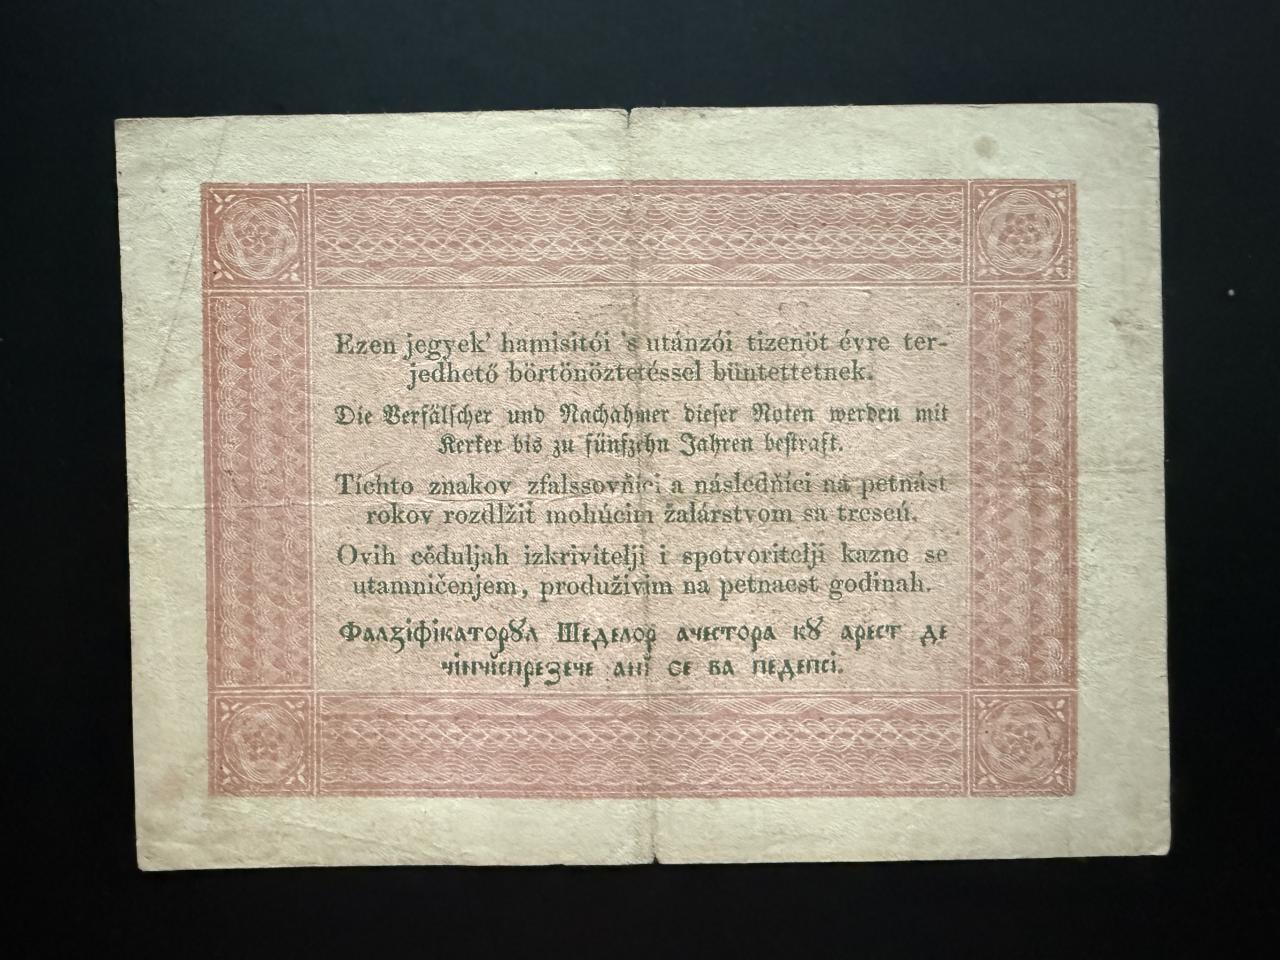 Ezen jegyek’ hamisitói ’s utánzói tizenöt évre ter-
jedhető börtönöztetéssel büntettetnek.
Die Verfälscher und Nachahmer dieser Noten werden mit
Kerker bis zu fünfzehn Jahren bestraft.
Tíchto znakov zfalssovňíci a následňíci na petnást
rokov rozdlžiť mohúcim žalárstvom sa trescú.
Ovih cěduljah izkrivitelji i spotvoritelji kazne se
utamničenjem, produživim na petnaest godinah.
Фалзіфікаторꙋл Шеделор ачестора кꙋ арест де
чінчїспрезече ані се ва педепсі.